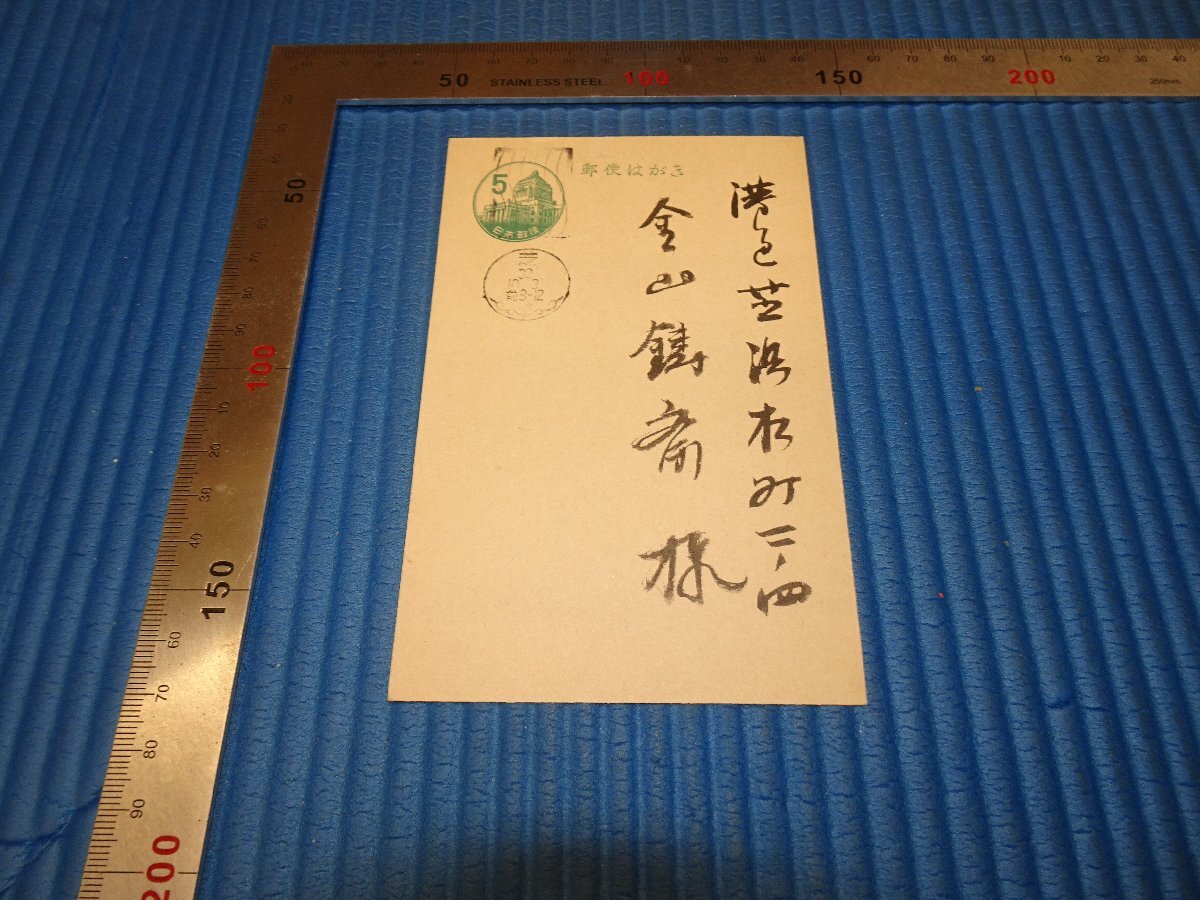 50 STAINLESS STEEL 100 150 200
250mm
50
100
150
200
郵便はがき
5
日本郵便
芝
前8-12
港区芝浜松町二ノ四
金山鋳斎様